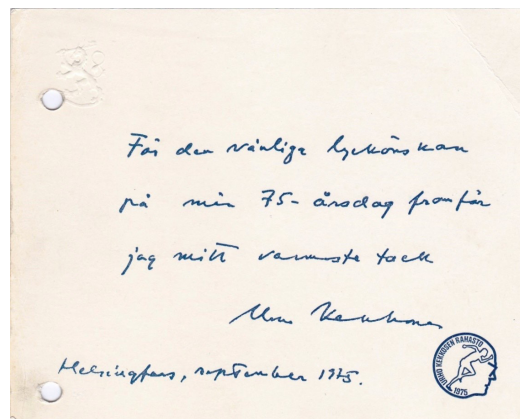 För den vänliga lyckönskan
på min 75-årsdag framför
jag mitt varmaste tack
Urho Kekkonen
Helsingfors, september 1975.
URHO KEKKOSEN RAHASTO
1975